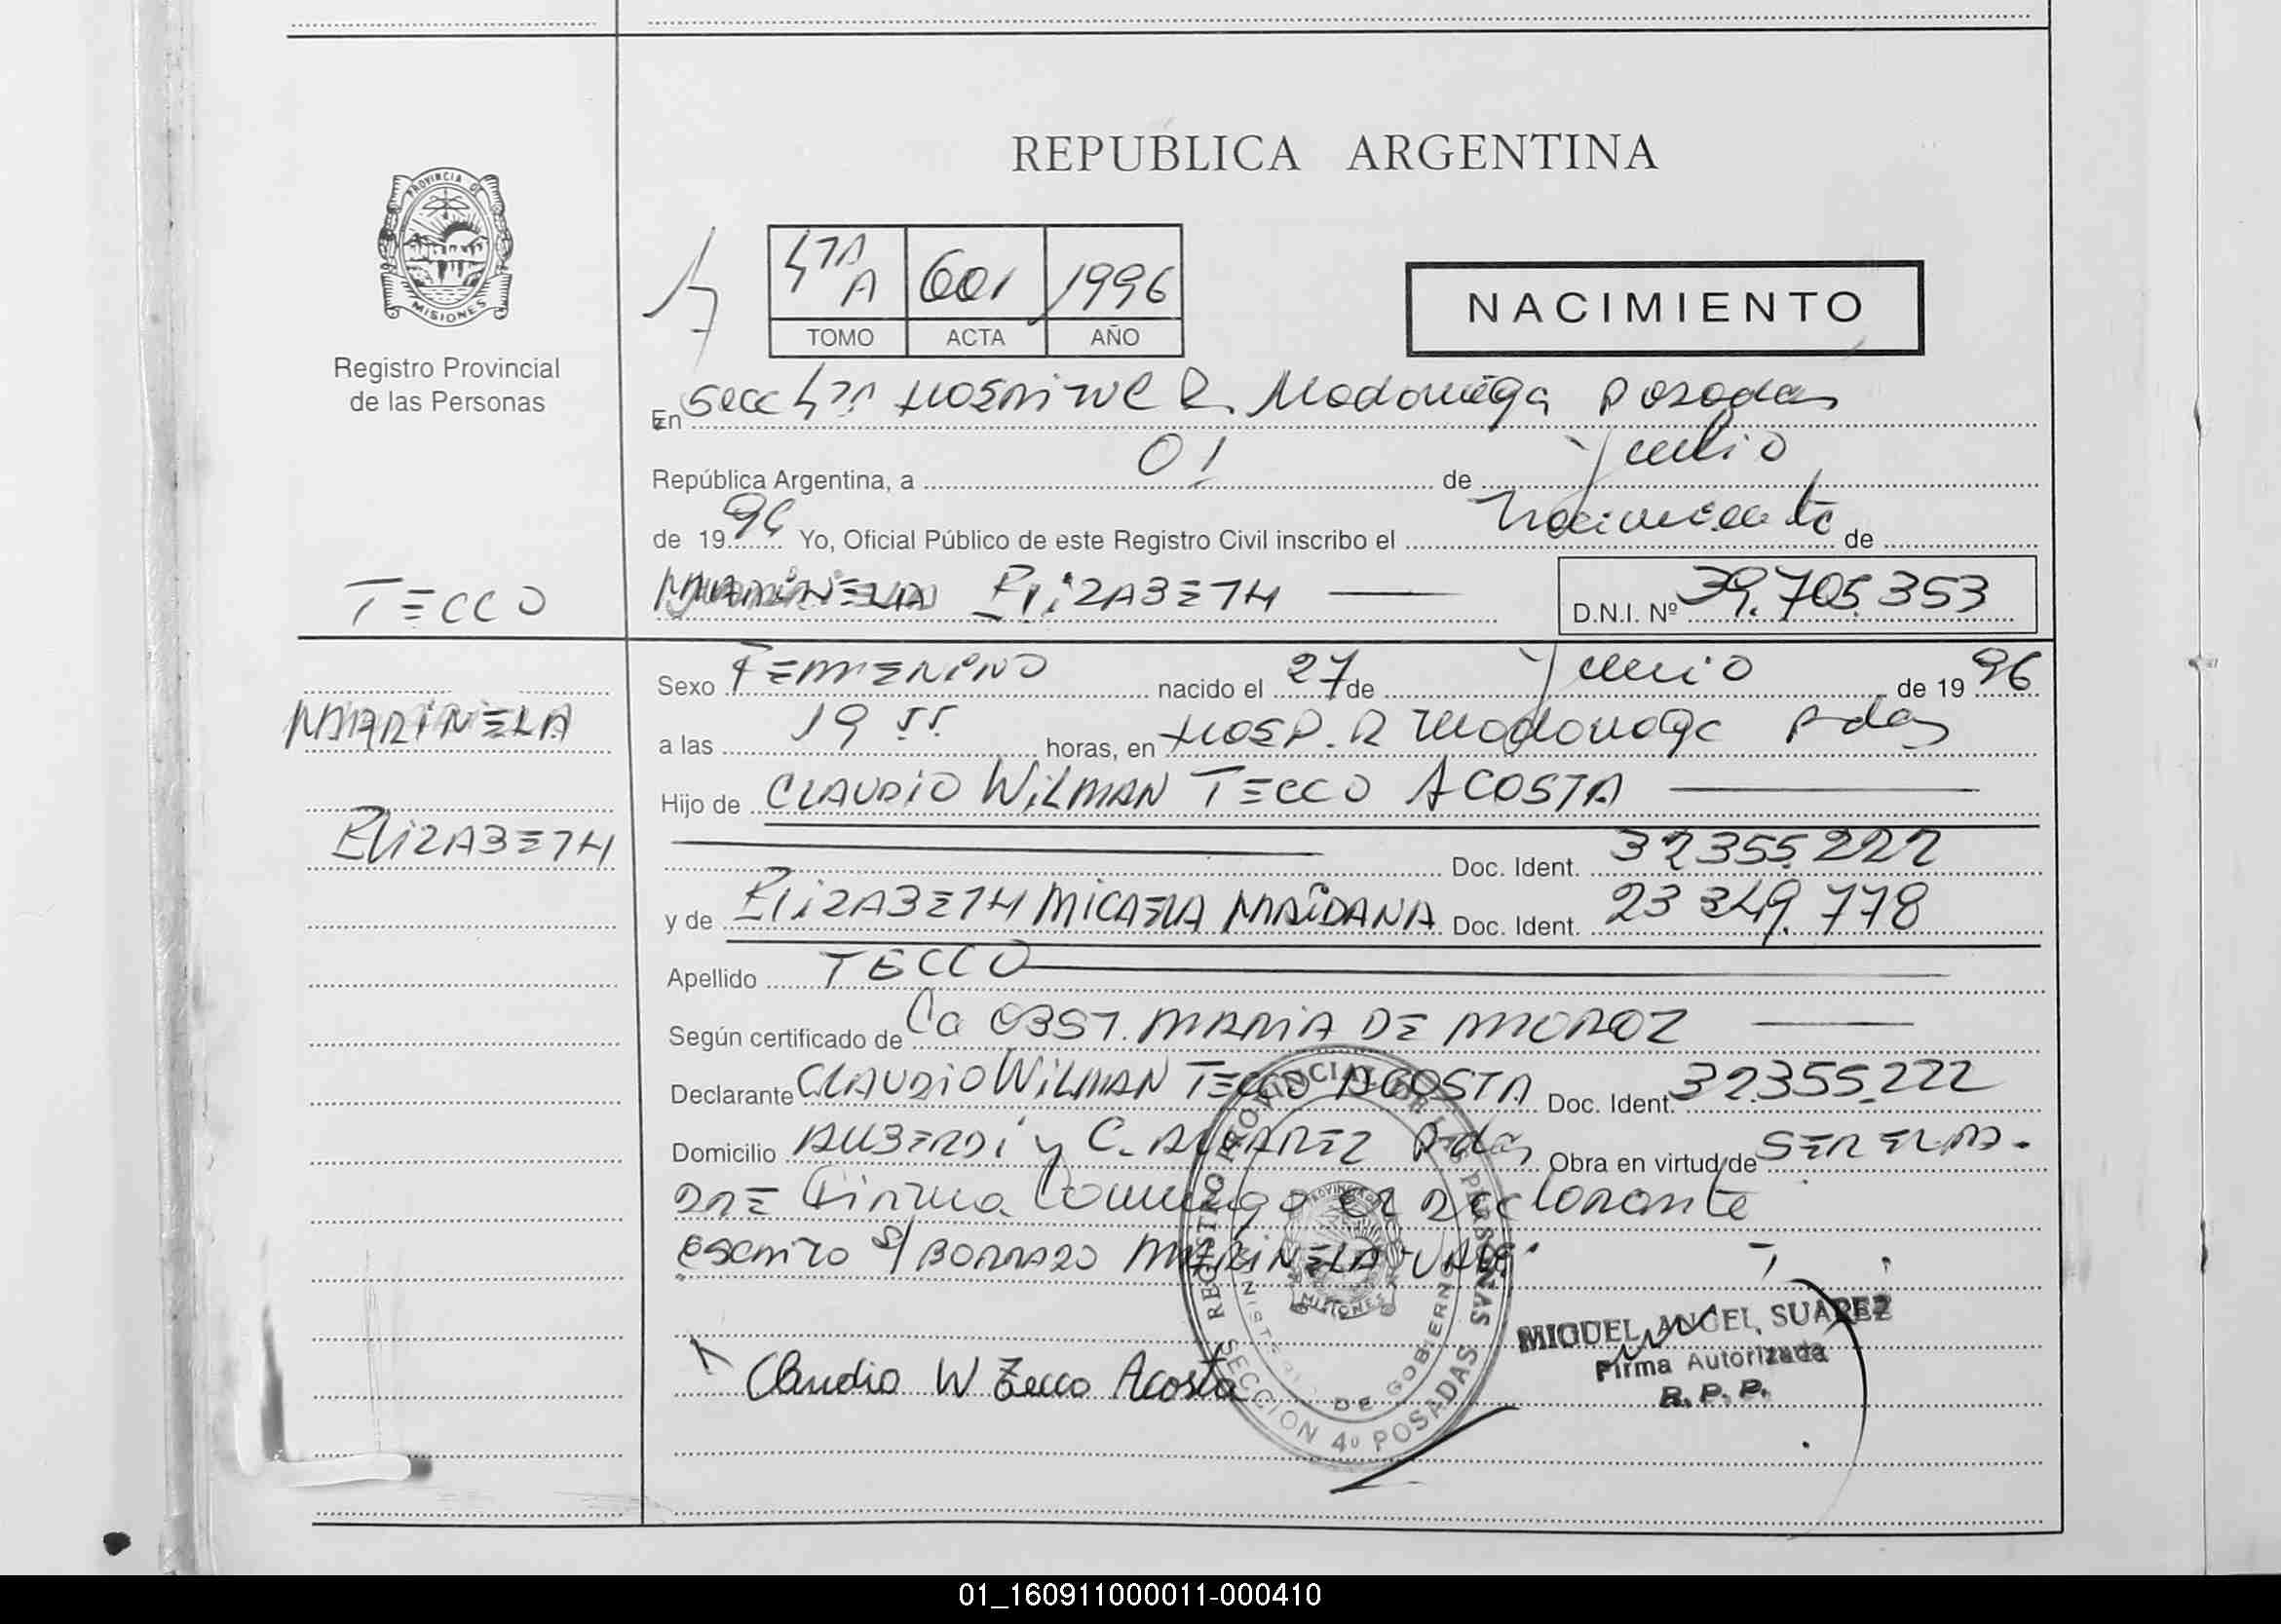 REPUBLICA ARGENTINA
PROVINCIA DE
MISIONES
Registro Provincial
de las Personas
4ta A 601 1996
TOMO ACTA AÑO
NACIMIENTO
En Secc 4ta Hospital R. Madariaga Posadas
República Argentina, a 01 de Julio
de 1996 Yo, Oficial Público de este Registro Civil inscribo el Nacimiento de
TECCO
MARINELA ELIZABETH
D.N.I. Nº 39.705.353
Sexo FEMENINO nacido el 27 de Junio de 1996
MARINELA
a las 19 55 horas, en HOSP. R Madariaga Pdas
Hijo de CLAUDIO WILMAN TECCO ACOSTA
ELIZABETH
Doc. Ident. 32355.222
y de ELIZABETH MICAELA MAIDANA Doc. Ident. 23 349.778
Apellido TECCO
Según certificado de La OBST. MARIA DE MOROZ
Declarante CLAUDIO WILMAN TECCO ACOSTA Doc. Ident. 32355.222
Domicilio ALBERDI y C. ALVAREZ Pdas Obra en virtud de SER EL PA.
DRE Firma Conmigo el Declarante
escrito s/ BORRADO MARINELA VALE.
Claudio W Tecco Acosta
REGISTRO PROVINCIAL DE LAS PERSONAS
MINISTERIO DE GOBIERNO
PROVINCIA DE
MISIONES
SECCION 4º POSADAS
MIGUEL ANGEL SUAREZ
Firma Autorizada
R. P. P.
01_160911000011-000410